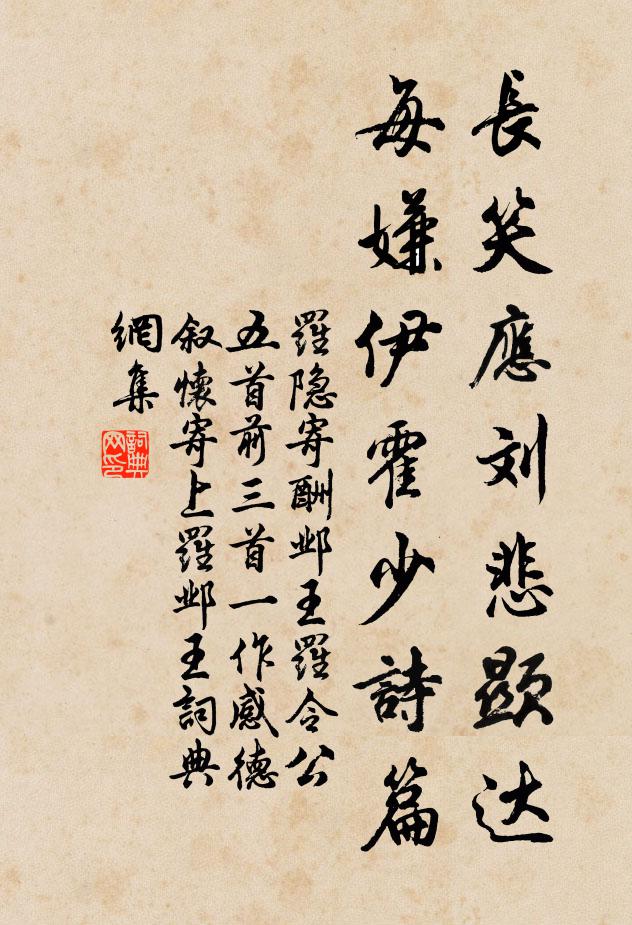 長笑應刘悲顯达
每嫌伊霍少詩篇
羅隐寄酬邺王羅令公
五首前三首一作感德
叙懷寄上羅邺王詞典
網集
詞典
网印